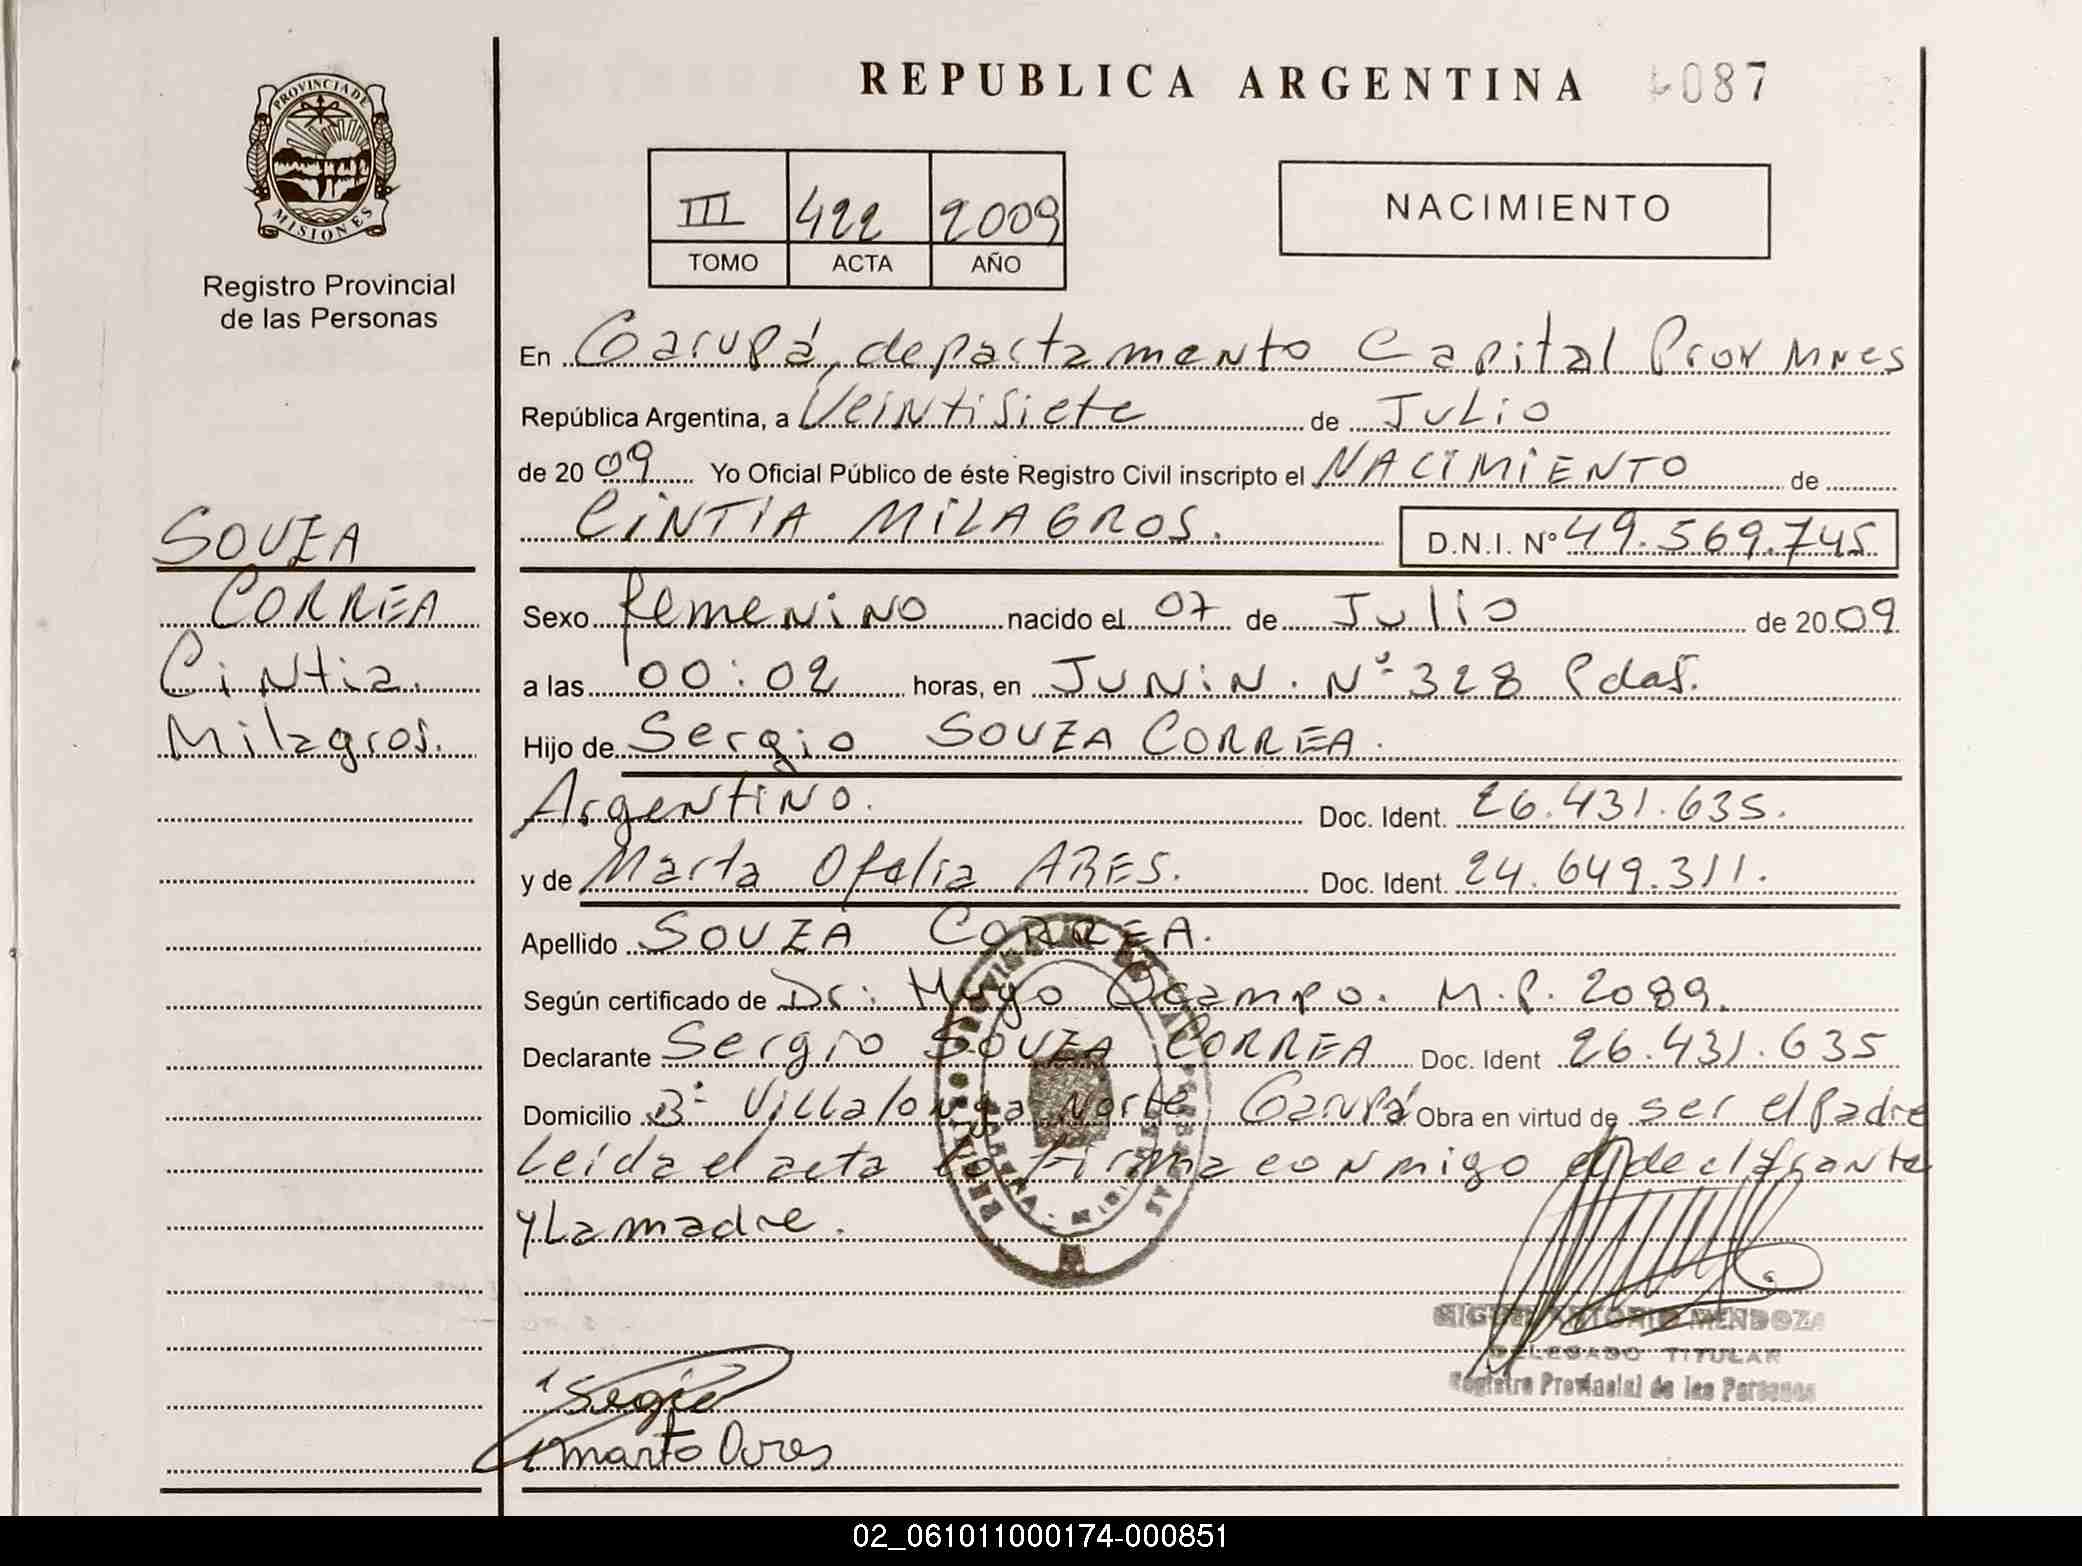 PROVINCIA DE
MISIONES
Registro Provincial
de las Personas
REPUBLICA ARGENTINA 087
III 422 2009
TOMO ACTA AÑO
NACIMIENTO
En Garupá, departamento Capital Prov Mnes
República Argentina, a Veintisiete de JULIO
de 2009 Yo Oficial Público de éste Registro Civil inscripto el NACIMIENTO de
CINTIA MILAGROS. D.N.I. Nº 49.569.745
SOUZA
CORREA
Cintia
Milagros.
Sexo femenino nacido el 07 de Julio de 2009
a las 00:02 horas, en JUNIN. Nº 328 Pdas.
Hijo de Sergio SOUZA CORREA.
Argentino. Doc. Ident. 26.431.635.
y de Marta Ofelia ARES. Doc. Ident. 24.649.311.
Apellido SOUZA CORREA.
Según certificado de Dr: Hugo Ocampo. M.P. 2089.
Declarante Sergio SOUZA CORREA Doc. Ident 26.431.635
Domicilio Bº Villalonga Norte Garupá Obra en virtud de ser el Padre
Leida el acta la firma conmigo el declarante
y La madre.
MIGUEL ANTONIO MENDOZA
DELEGADO TITULAR
Registro Provincial de las Personas
Sergio
Marta Ares
02_061011000174-000851